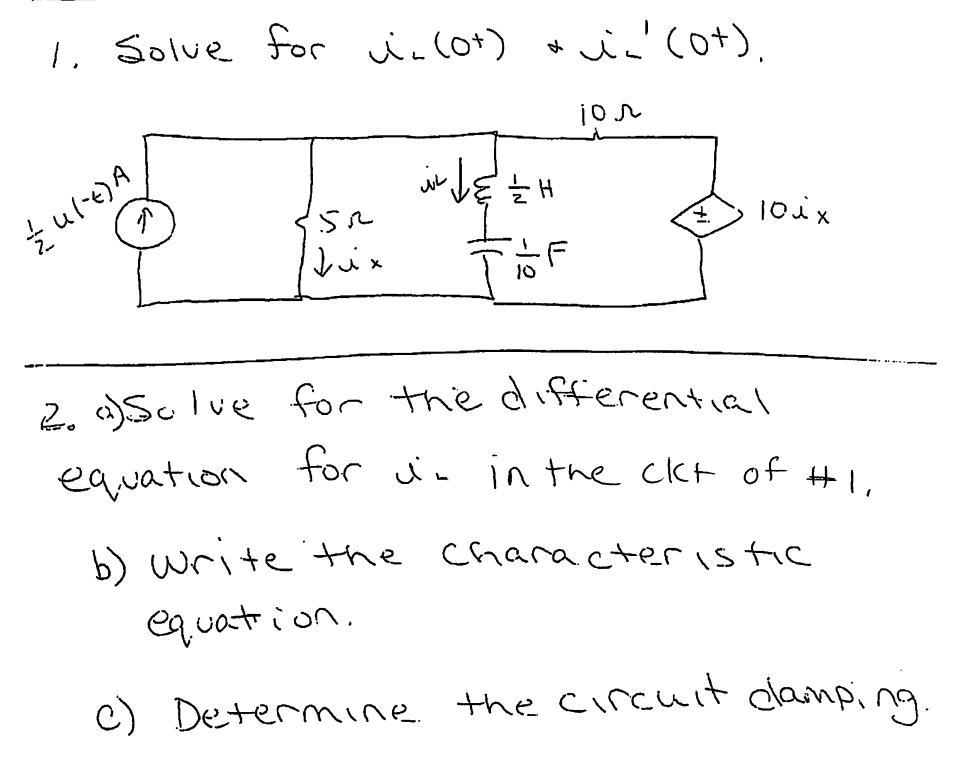 1. Solve for iL(0+) & iL'(0+).
10Ω
½ u(-t) A
5Ω
ix
iL
½ H
1/10 F
±
10ix
2. a) Solve for the differential
equation for iL in the ckt of #1.
b) Write the characteristic
equation.
c) Determine the circuit damping.